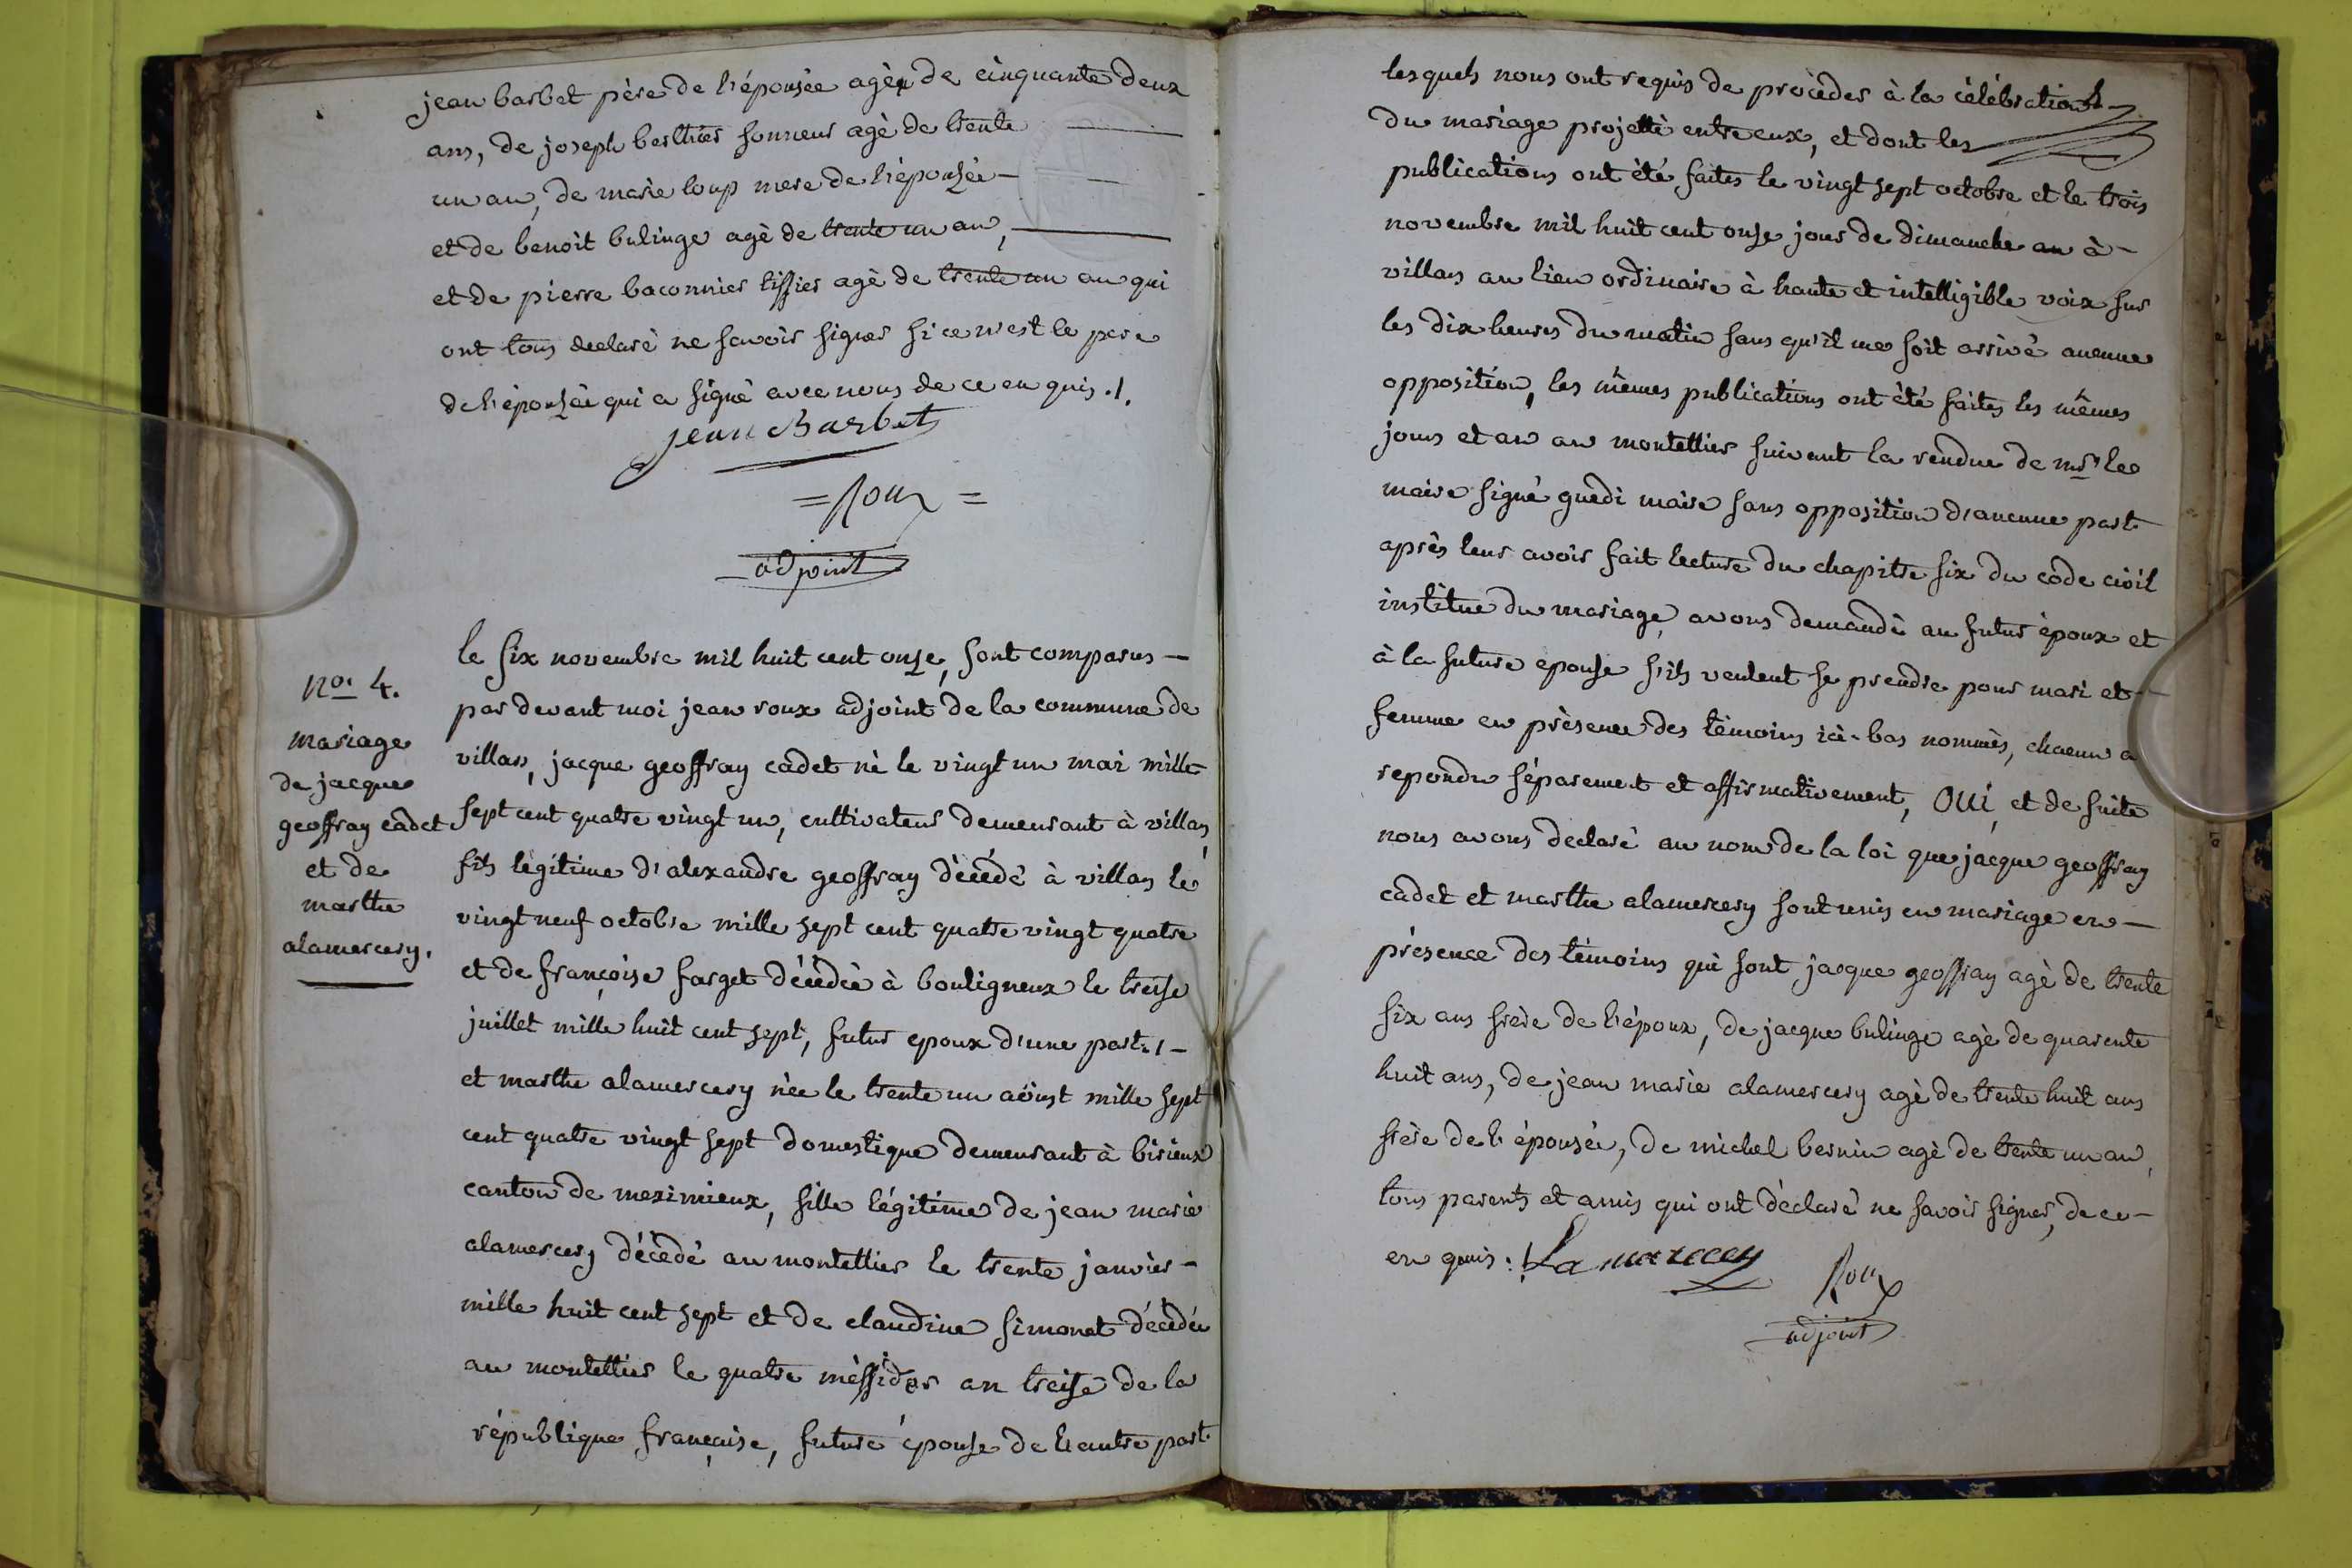 jean barbet père de l'épousée agée de cinquante deux
ans, de joseph berthier sonneur agè de trente
un an, de marie loup mere de l'épousée
et de benoit bulinge agè de trente un an,
et de pierre baconnier tissier agè de trente un an qui
ont tous declaré ne savoir signer si ce n'est le pere
de l'épousée qui a signé avec nous de ce enquis ./.
jean Barbet
= Roux =
adjoint
no. 4.
mariage
de jacque
geoffray cadet
et de
marthe
alamercery.
le six novembre mil huit cent onze, sont comparus -
par devant moi jean roux adjoint de la commune de
villars, jacque geoffray cadet né le vingt un mai mille
sept cent quatre vingt un, cultivateur demeurant à villars,
fils légitime d'alexandre geoffray décédé à villars le
vingt neuf octobre mille sept cent quatre vingt quatre
et de françoise farget décédée à bouligneux le treise
juillet mille huit cent sept, futur epoux d'une part. -
et marthe alamercery née le trente un aoust mille sept
cent quatre vingt sept domestique demeurant à birieux
canton de meximieux, fille légitime de jean marie
alamercery décédé au montellier le trente janvier -
mille huit cent sept et de claudine simonet décédée
au montellier le quatre messidor an treise de la
république française, future épouse de l'autre part
lesquels nous ont requis de procèder à la célébration
du mariage projetté entre eux, et dont les
publications ont été faites le vingt sept octobre et le trois
novembre mil huit cent onze jour de dimanche an à -
villars au lieu ordinaire à haute et intelligible voix sur
les dix heures du matin sans qu'il me soit arrivé aucune
opposition, les mêmes publications ont été faites les mêmes
jours et an au montellier suivant la rendue de mr le
maire signé guedi maire sans opposition d'aucune part
après leur avoir fait lecture du chapitre six du code civil
institue du mariage, avons demandé au futur époux et
à la future epouse s'ils veulent se prendre pour mari et -
femme en présence des témoins ici-bas nommès, chacun a
repondu séparement et affirmativement, OUI, et de suite
nous avons declaré au nom de la loi que jacque geoffray
cadet et marthe alamercery sont unis en mariage en -
présence des témoins qui sont jacque geoffray agè de trente
six ans frère de l'époux, de jacque bulinge agè de quarente
huit ans, de jean marie alamercery agè de trente huit ans
frère de l'épousée, de michel bernin agè de trente un an,
tous parents et amis qui ont déclaré ne savoir signer, de ce -
en quis :/. Lamercery
Roux
adjoint